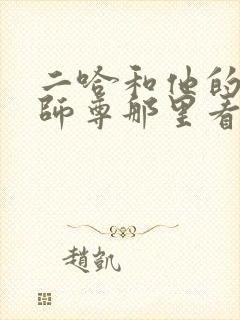 二哈和他的
師尊那里看
趙凱